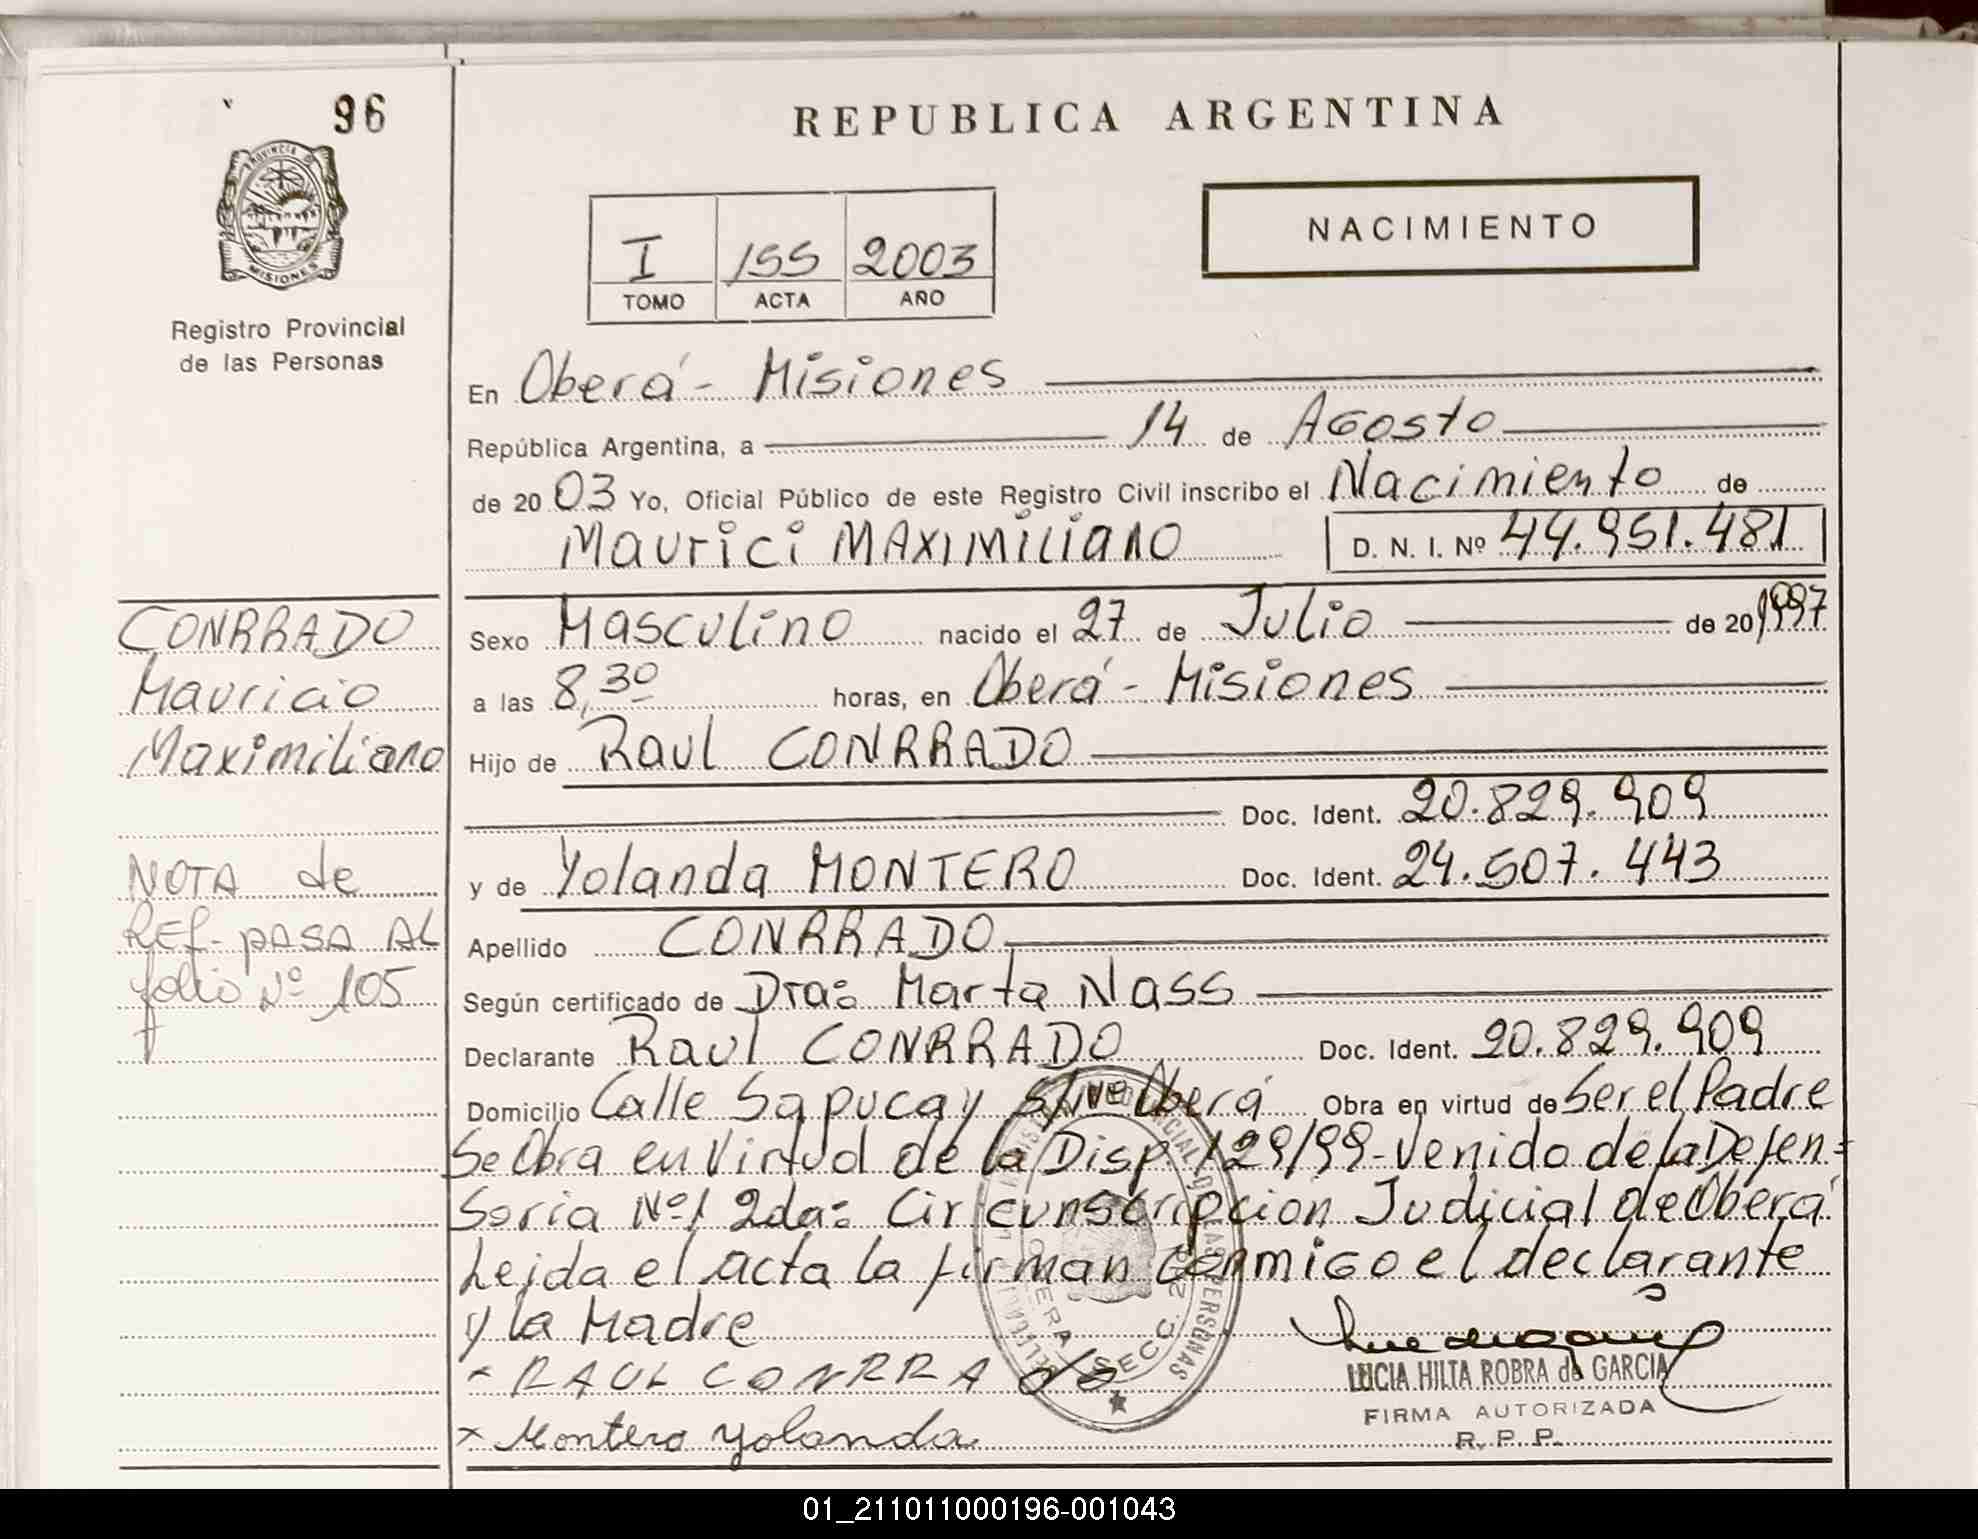 96
REPUBLICA ARGENTINA
PROVINCIA DE
MISIONES
Registro Provincial
de las Personas
I 155 2003
TOMO ACTA AÑO
NACIMIENTO
En Oberá - Misiones
República Argentina, a 14 de Agosto
de 20 03 Yo, Oficial Público de este Registro Civil inscribo el Nacimiento de
Maurici MAXIMILIANO D. N. I. Nº 44.951.481
Sexo Masculino nacido el 27 de Julio de 20 1997
a las 8,30 horas, en Oberá - Misiones
Hijo de Raul CONRRADO
Doc. Ident. 20.829.909
y de Yolanda MONTERO Doc. Ident. 24.507.443
Apellido CONRRADO
Según certificado de Dra: Marta Nass
Declarante Raul CONRRADO Doc. Ident. 20.829.909
Domicilio Calle Sapucay S/Nº Oberá Obra en virtud de Ser el Padre
Se Obra en Virtud de la Disp. 129/99 - Venido de la Defen=
Soria Nº 1 2da: Circunscripcion Judicial de Oberá
Leida el acta la firman conmigo el declarante
y la Madre
RAUL CONRRADO
x Montero Yolanda
LUCIA HILTA ROBRA de GARCIA
FIRMA AUTORIZADA
R. P. P.
CONRRADO
Mauricio
Maximiliano
NOTA de
REF- PASA AL
folio Nº 105
OBERA SECC.
01_211011000196-001043